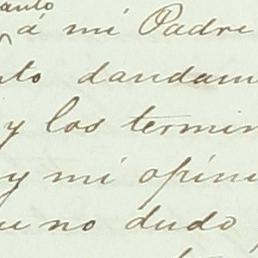 anto
á mi Padre
to dandam
y los termin
y mi opini
ue no dudo,